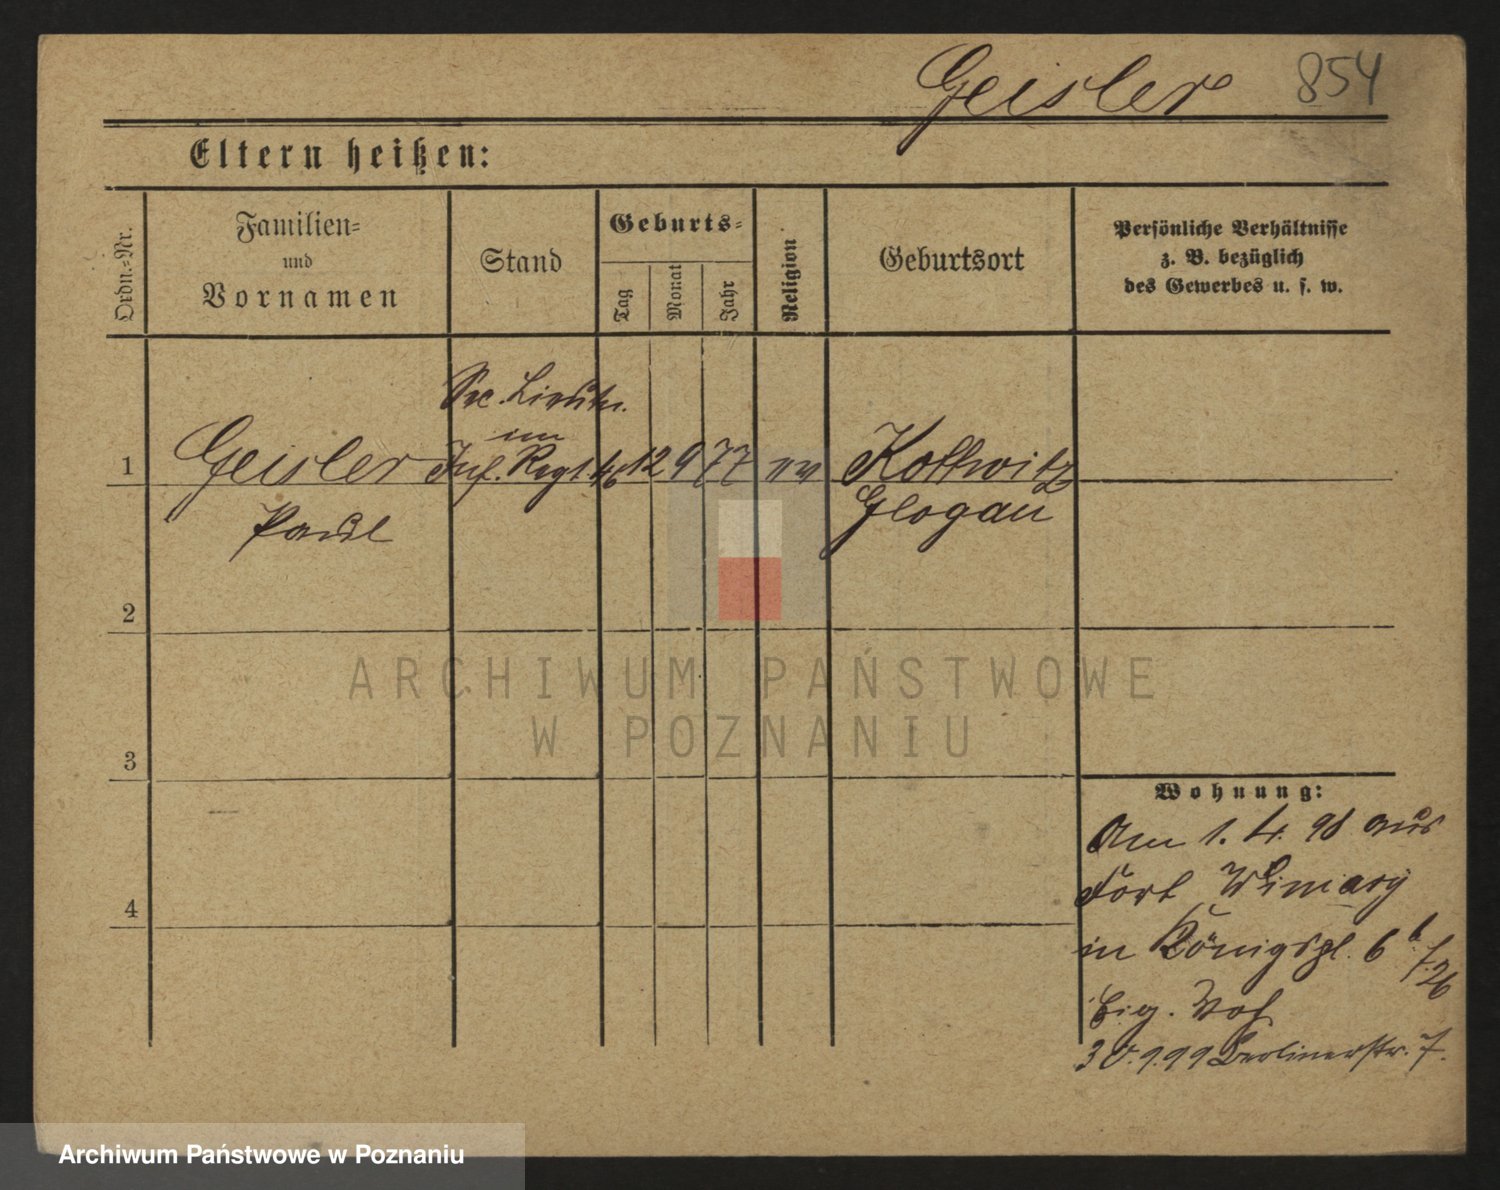 Geisler 854
Eltern heißen:
Ordn.-Nr.
Familien-
und
Vornamen
Stand
Geburts-
Tag
Monat
Jahr
Religion
Geburtsort
Persönliche Verhältnisse
z. B. bezüglich
des Gewerbes u. s. w.
Sec. Lieutn.
im
1 Geisler Inf. Regt. 46 12 9 77 ev Kottwitz
Paul Glogau
2
3
4
Wohnung:
Am 1. 4. 98 aus
Fort Winiary
in Königspl. 6
Eig. Woh
30.9.99 Berlinerstr. 7.
ARCHIWUM PAŃSTWOWE
W POZNANIU
Archiwum Państwowe w Poznaniu